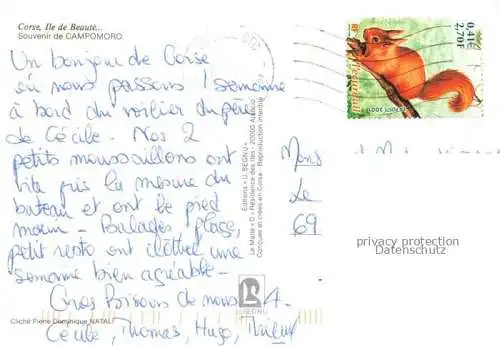 Corse, Ile de Beauté...
Souvenir de CAMPOMORO
Un bonjour de Corse
où nous passons 1 semaine
à bord du voilier du père
de Cécile. Nos 2
petits moussaillons ont
vite pris la mesure du
bateau et ont le pied
marin. Balades, plage,
petit resto ont clôturé une
semaine bien agréable.
Gros Bisous de nous 4.
Cécile, Thomas, Hugo,
Cliché Pierre Dominique NATALI
Editions « U. SEGNU »
Le Malte « D » Résidence des Iles - 20000 Ajaccio
Conçues et créées en Corse - Reproduction interdite
U SEGNU
0,41€
2,70F
RF
LA POSTE 2001
Le
69
privacy protection
Datenschutz